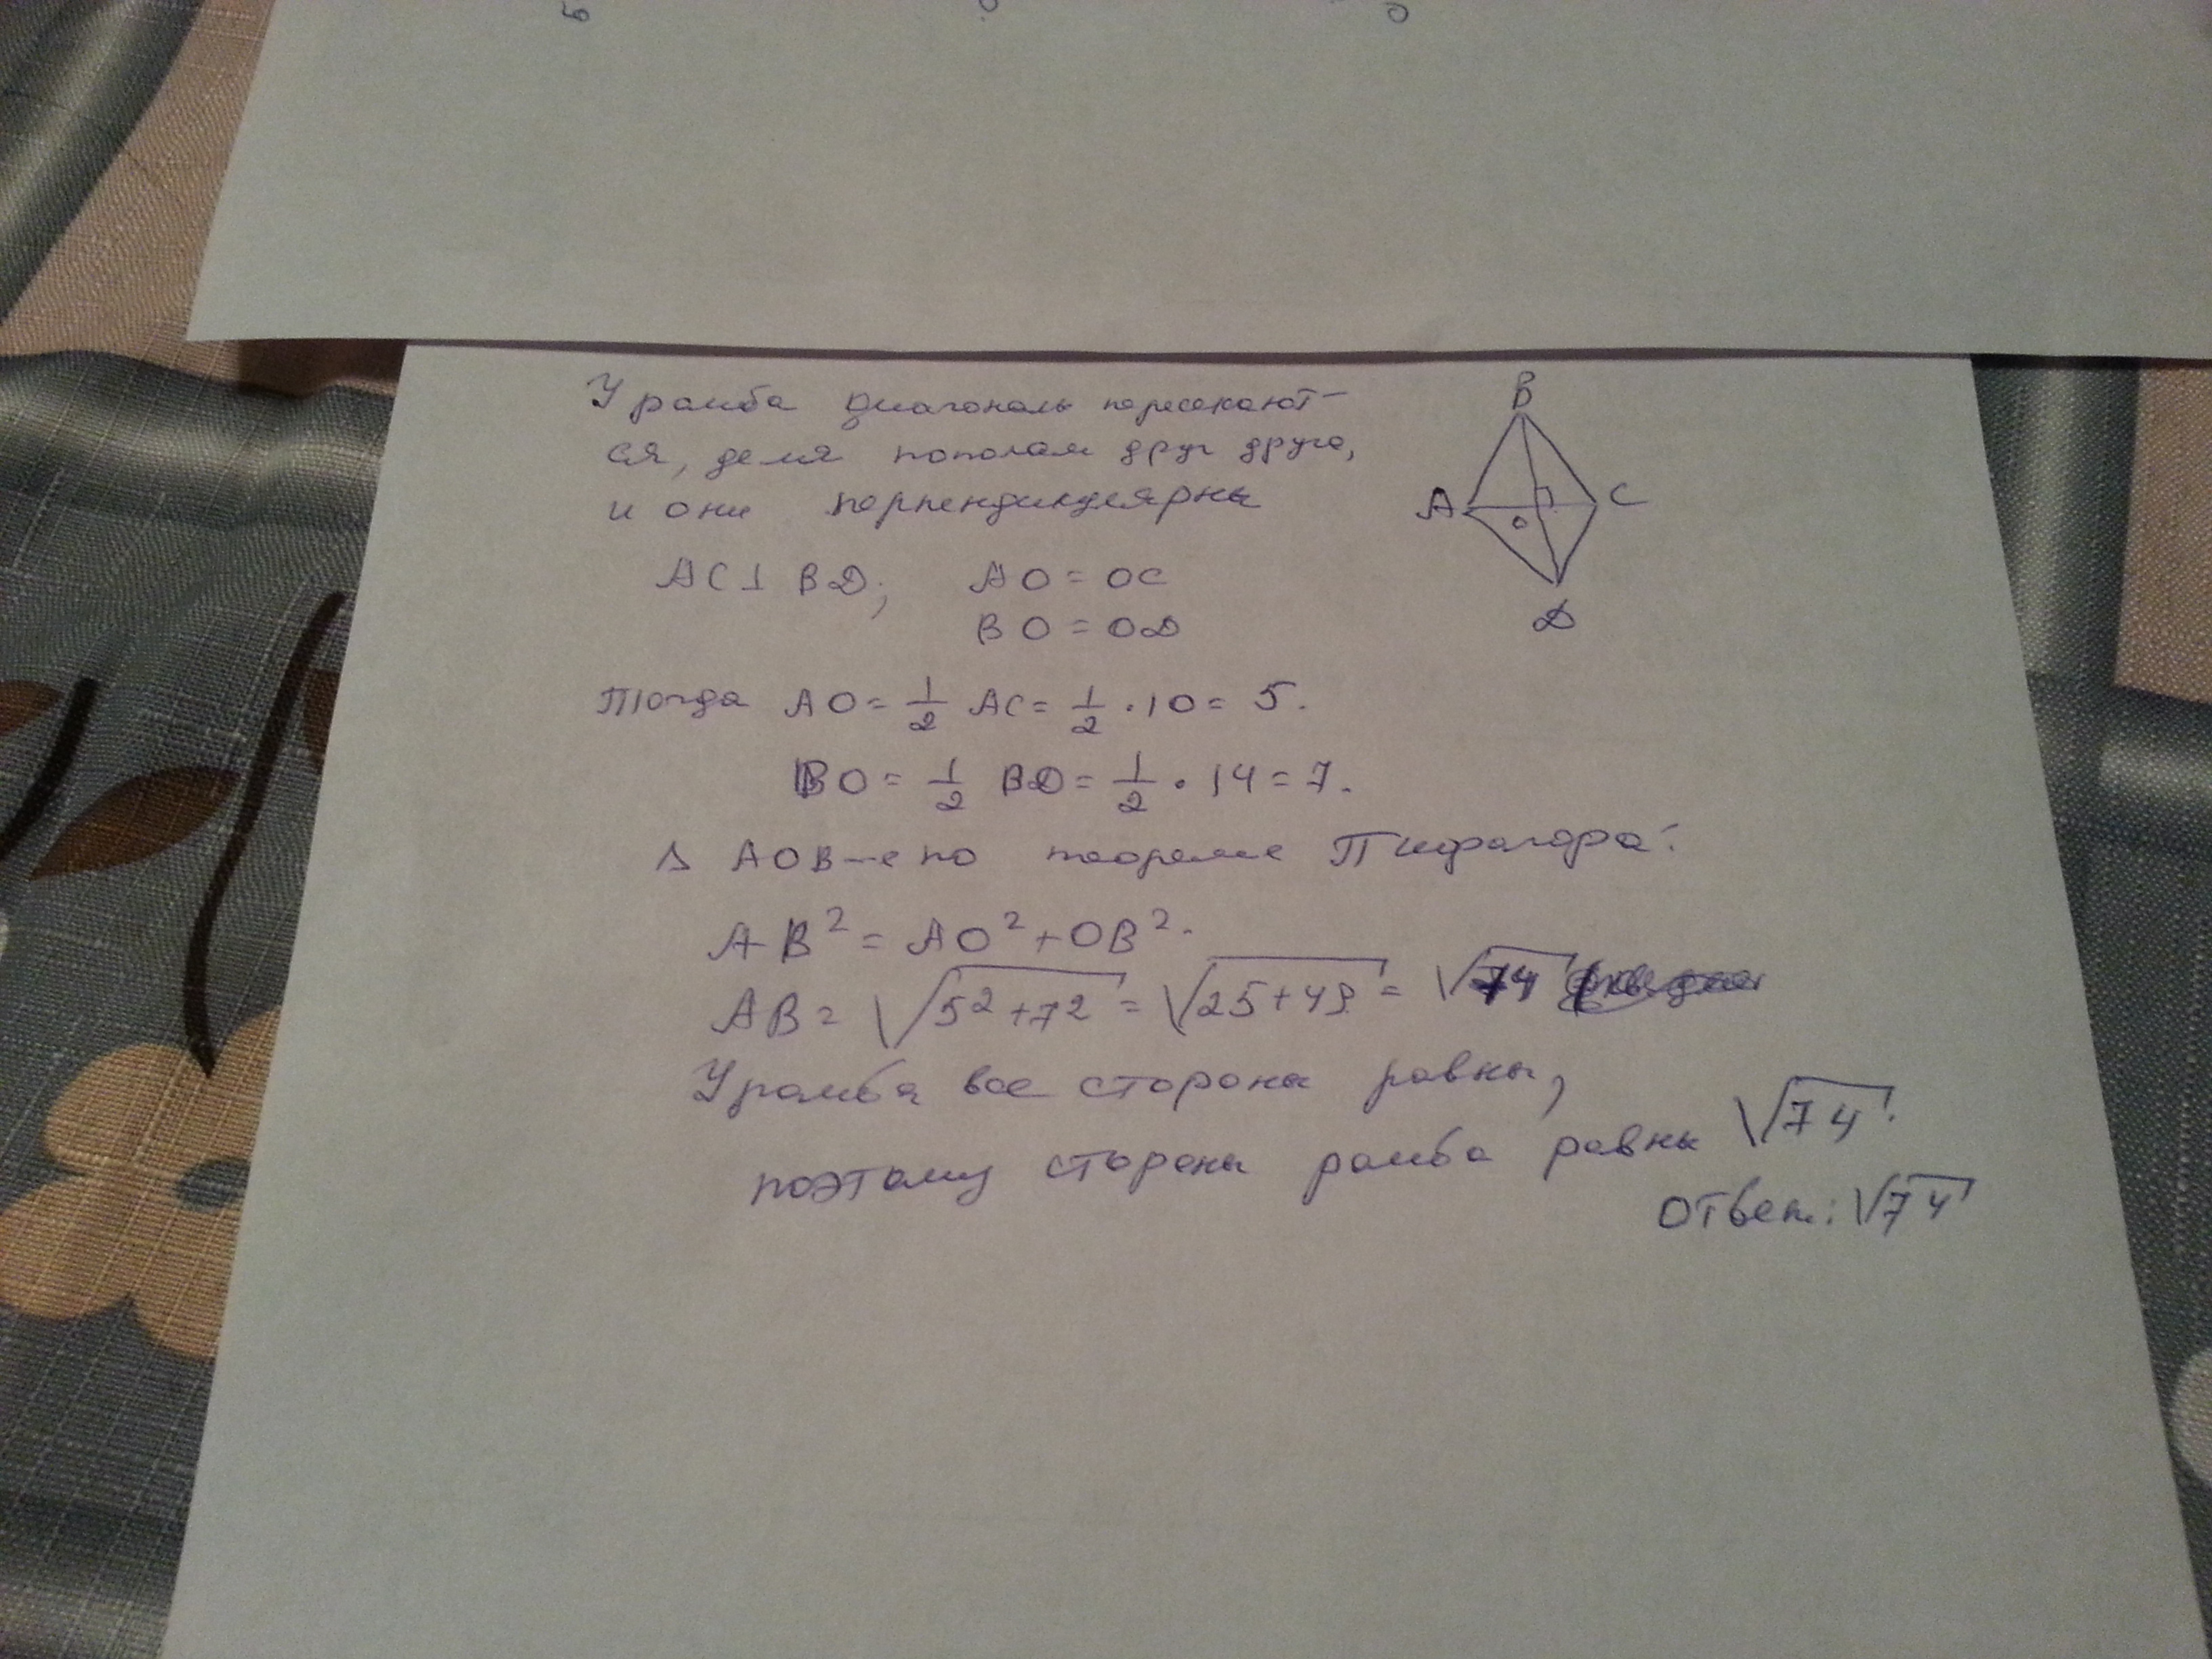 У ромба диагональ пересекают-
ся, деля пополам друг друга,
и они перпендикулярны
B
A
C
O
D
AC⊥ BD; AO = OC
BO = OD
Тогда AO = 1/2 AC = 1/2 · 10 = 5.
BO = 1/2 BD = 1/2 · 14 = 7.
Δ AOB-е по теореме Пифагора:
AB² = AO² + OB².
AB = √5² + 7² = √25 + 49 = √74
У ромба все стороны равны,
поэтому стороны ромба равны √74.
Ответ: √74